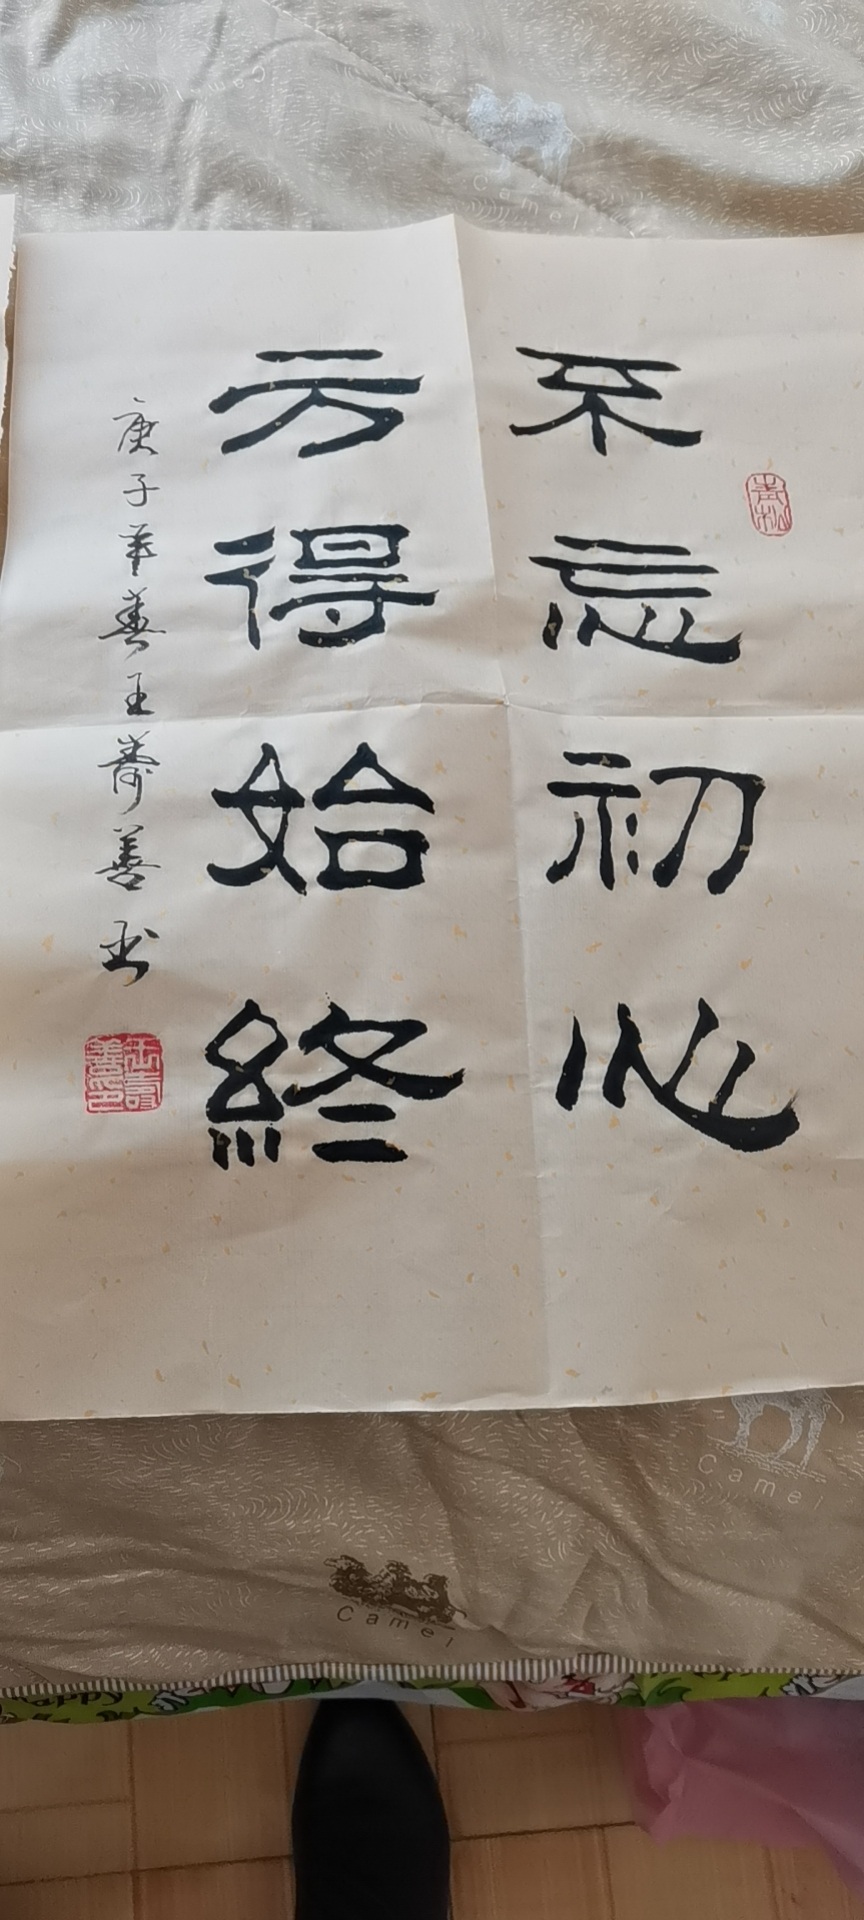 不忘初心
方得始終
庚子年善王壽善书
青松
Camel
Camel
Camel
happy